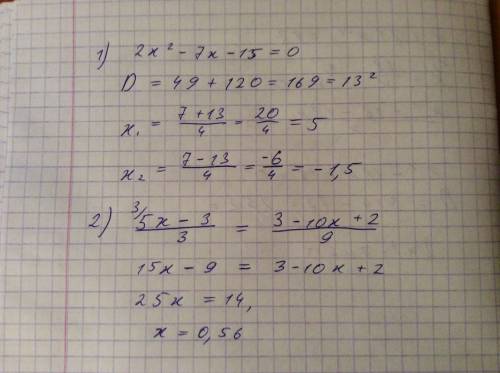 1) 2x² - 7x - 15 = 0
D = 49 + 120 = 169 = 13²
x₁ = (7 + 13)/4 = 20/4 = 5
x₂ = (7 - 13)/4 = -6/4 = -1,5
2) ³⁾(5x - 3)/3 = (3 - 10x + 2)/9
15x - 9 = 3 - 10x + 2
25x = 14,
x = 0,56